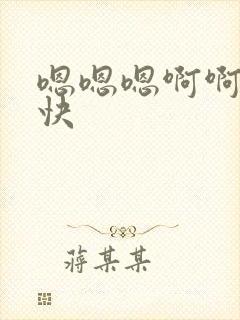 嗯嗯嗯啊啊
快
蒋某某